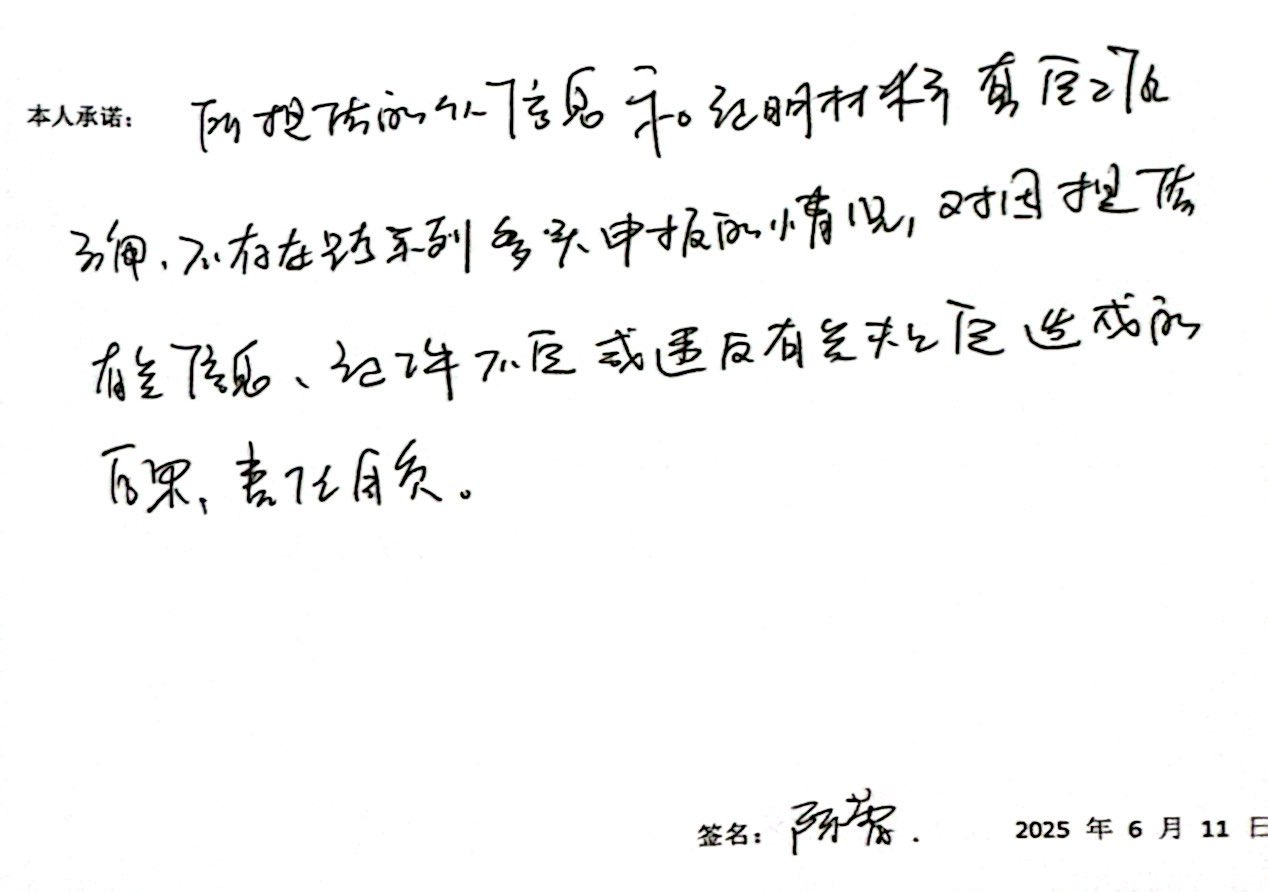 本人承诺： 所提供的个人信息和证明材料真实准
确，不存在跨系列多头申报的情况，对因提供
有关信息、证件不实或违反有关规定造成的
后果，责任自负。
签名： 2025 年 6 月 11 日